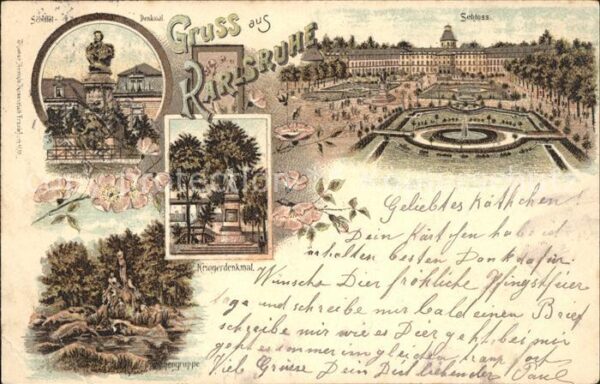 Denkmal
Gruss aus
Karlsruhe
Schloss.
Kriegerdenkmal.
Geliebtes Käthchen!
Dein Kärtchen habe ich
erhalten besten Dank dafür
Wünsche Dier fröhliche Pfingstfeier
tage und schreibe mir bald einen Brief
schreibe mir wie es Dier geht bei mir
geht es immer im gleichen
Viel Grüsse Dein Dich liebender Paul